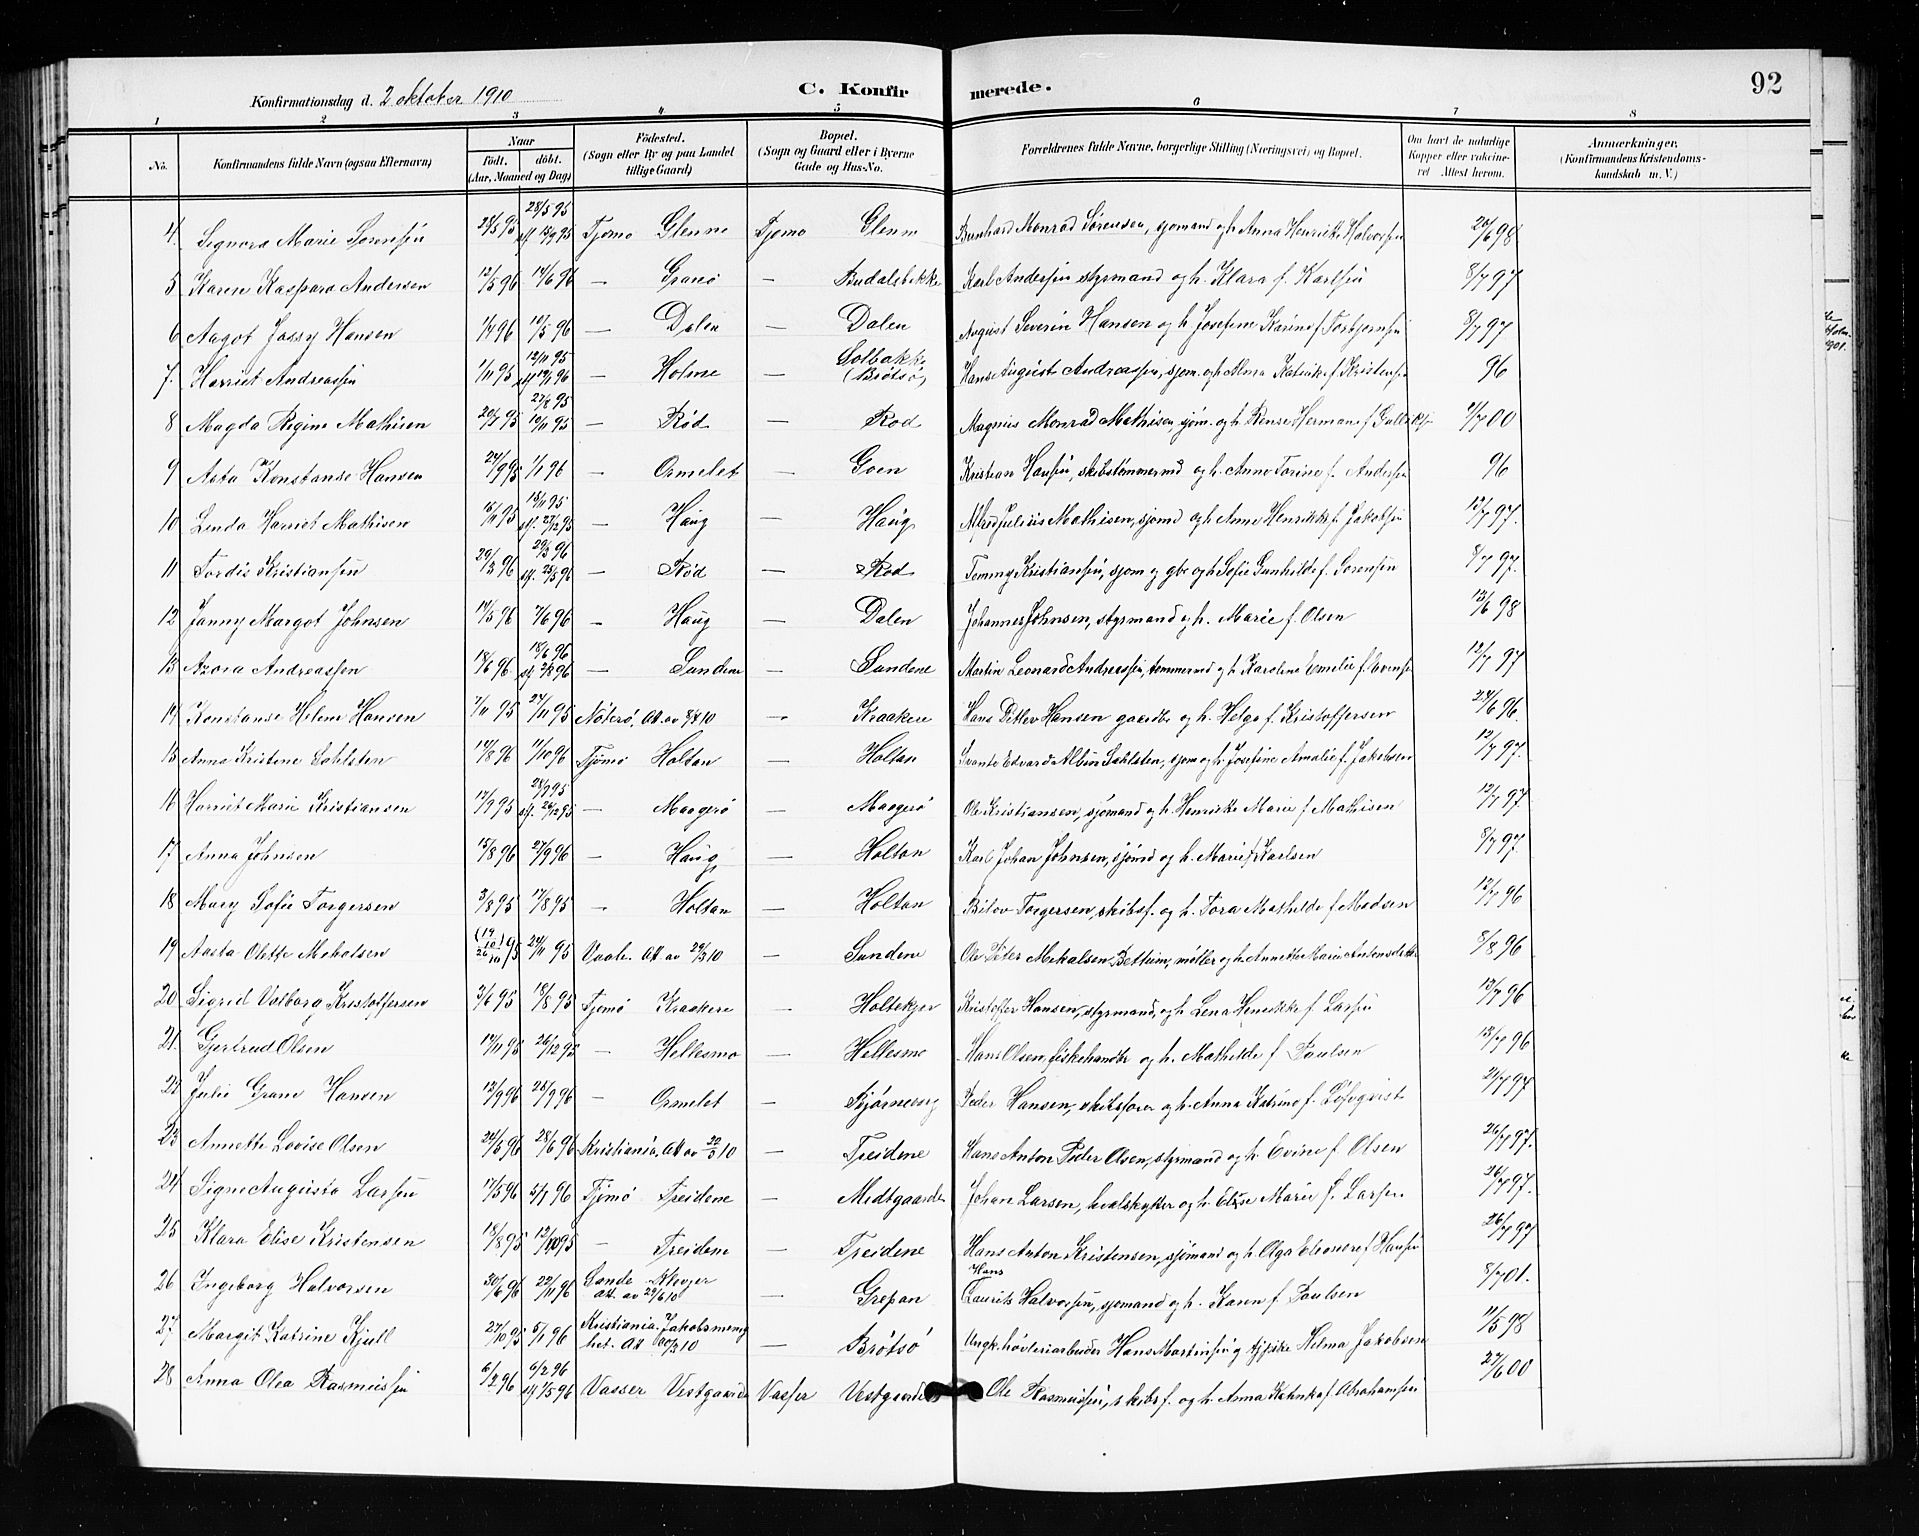 92
Konfirmationsdag d. 2 oktober 1910 C. Konfirmerede.
1 2 3 4 5 6 7 8
No. Konfirmandens fulde Navn (ogsaa Efternavn) Naar født. døbt. (Aar, Maaned og Dag) Födested. (Sogn eller By og paa Landet tillige Gaard) Bopæl. (Sogn og Gaard eller i Byerne Gade og Hus-No. Forældrenes fulde Navne, borgerlige Stilling (Næringsvei) og Bopæl. Om havt de naturlige Kopper eller vaccineret Attest herom. Anmærkninger, (Konfirmandens Kristendomskundskab m. V.)
4. Signora Marie Sørensen 28/5 95 28/5 95 Tjømø Glenne Tjømø Glenne Bernhard Monrad Sørensen, sjømand og h. Anna Henrikke Halvorsen
5 Karen Kaspara Andersen 12/5 96 14/6 96 — Granö — Budalsbakke Karl Andersen styrmand og h. Klara f. Karlsen 8/7 97
6 Aagot Jossy Hansen 1/4 96 10/5 96 — Dalen — Dalen August Severin Hansen og h. Josefine Karine f. Torbjørnsen 8/7 97
7. Harriet Andreassen 1/11 95 12/11 95 — Holme — Solbakke (Brøtsø) Hans August Andreassen, sjøm. og h. Alma Katrike f. Kristensen 96
8 Magda Regine Mathisen 20/7 95 10/11 95 — Rød — Rød Magnus Monrad Mathisen, sjøm. og h. Hermane f. Gulliksen 00
9 Asta Konstanse Hansen 24/9 95 1/1 96 — Ormelet — Goen Kristian Hansen, skibstømmermd og h. Anne Torine f. Andersen 96
10 Lenda Harriet Mathisen 15/11 95 18/11 95 stf. 27/12 95 — Haug — Haug Alfred Julius Mathisen, sjømd og h. Anne Henrikke f. Jakobsen 12/7 97.
11 Tordis Kristiansen 29/3 96 29/3 96 stf. 25/5 96 — Rød — Rød Tommy Kristiansen, sjøm og gbr og h. Sofie Gunhilde f. Sørensen 8/7 97.
12 Janny Margot Johnsen 14/5 96 7/6 96 — Haug — Dalen Johannes Johnsen, styrmand og h. Marie f. Olsen 98
13 Azora Andreassen 18/6 96 18/6 96 stf 2/8 96 — Sundene — Sundene Martin Leonard Andreassen, tømmermd og h. Karoline Emelie f. Evensen 12/7 97
14 Konstanse Helene Hansen 7/11 95 24/11 95 Nøterø, Att. av 8/4 10 — Kraakere Hans Ditlev Hansen gaardbr og h. Helga f. Kristoffersen 24/6 96.
15 Anna Kristene Sahlsten 14/8 96 11/10 96 Tjømø Holtan — Holtan Svante Edvard Albin Sahlsten, sjøm og h. Josefine Amalie f. Jakobsen 12/7 97.
16 Harriet Marie Kristiansen 17/9 95 28/9 95 stf. 26/12 95 — Maagerø — Maagerø Ole Kristiansen, sjømand og h. Henrikke Marie f. Mathisen 12/7 97
17 Anna Johnsen 15/8 96 27/9 96 — Haug — Holtan Karl Johan Johnsen, sjømd og h. Marie f. Karlsen 8/7 97.
18 Mary Sofie Torgersen 3/8 95 17/8 95 — Holtan — Holtan Torgersen, skibsf. og h. Tora Mathilde f. Madsen 12/7 96
19 Aasta Olette Mekalsen (19/10) 26/10 95 24/11 95 Vaale. Att. av 29/3 10 — Sundene Ole Peter Mekalsen Bettum, møller og h. Annette Marie Antonsdatter 8/8 96
20 Sigrid Valborg Kristoffersen 3/6 95 18/8 95 Tjømø Kraakere — Holtekjær Kristoffer Hansen, styrmand, og h. Lena Henrikke f. Larsen 13/7 96
21. Gjertrud Olsen 17/11 95 26/12 95 — Hellesmo — Hellesmo Hans Olsen, fiskehandler og h. Mathilde f. Paulsen 13/7 96
22 Julie Grane Hansen 12/9 96 25/9 96 — Ormelet — Bjørneberg Peder Hansen, skibsfører og h. Anna Katrine f. Löfqvist 21/7 97
23 Annette Lovise Olsen 22/5 96 28/6 96 Kristiania, Att av 30/3 10 — Treidene Hans Anton Peder Olsen, styrmand og h. Evine f. Olsen 26/7 97.
24 Signe Augusta Larsen 17/5 96 5/7 96 Tjømø Treidene — Midtgaarden Johan Larsen, hvalskytter og h. Elise Marie f. Larsen 26/7 97.
25 Klara Elise Kristensen 18/8 95 13/10 95 — Treidene — Treidene Hans Anton Kristensen, sjømand og h. Olga Eleonore f. Hansen 26/7 97
26 Ingeborg Halvorsen 30/6 96 22/11 96 Sande Klevjer Att. av 29/6 10 — Grepan Hans Laurits Halvorsen, sjømand og h. Karen f. Paulsen 8/7 01.
27 Margit Katrine Kjøll 27/10 95 5/1 96 Kristiania, Jakobsmenighet. Att 30/3 10 — Brøtsø Ungk. høvleriarbeider Hans Martinsen og tj.pike Helma Jakobsen 11/5 98
28 Anna Olea Rasmussen 6/2 96 6/2 96 stf 1/5 96 Vasser Vestgaarden Vasser Vestgaarden Ole Rasmussen, skibsf. og h. Anna Kathinka f. Abrahamsen 27/6 00